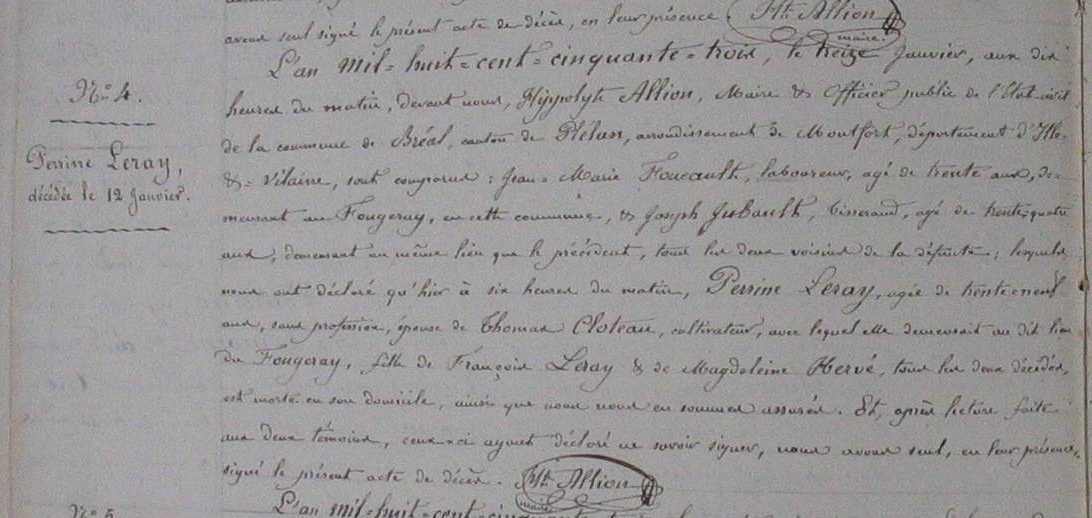 avons seul signé le présent acte de décès, en leur présence. Hte Allion
maire.
L'an mil-huit-cent-cinquante-trois, le treize Janvier, aux dix
N° 4.
heures du matin, devant nous, Hippolyte Allion, Maire & Officier public de l'État-civil
de la commune de Bréal, canton de Plélan, arrondissement de Montfort, département d'Ille-
Perrine Leray,
décédée le 12 Janvier.
&-Vilaine, sont comparus : Jean-Marie Foucault, laboureur, agé de trente ans, de-
meurant au Fougeray, en cette commune, & Joseph Jubault, tisserand, agé de trente-quatre
ans, demeurant au même lieu que le précédent, tous les deux voisins de la défunte ; lesquels
nous ont déclaré qu'hier à six heures du matin, Perrine Leray, agée de trente-neuf
ans, sans profession, épouse de Thomas Cloteau, cultivateur, avec lequel elle demeurait au dit lieu
du Fougeray, fille de François Leray & de Magdeleine Hervé, tous les deux décédés,
est morte en son domicile, ainsi que nous nous en sommes assurés. Et, après lecture faite
aux deux témoins, ceux-ci ayant déclaré ne savoir signer, nous avons seul, en leur présence,
signé le présent acte de décès. Hte Allion
maire
N° 5
L'an mil-huit-cent-cinquante